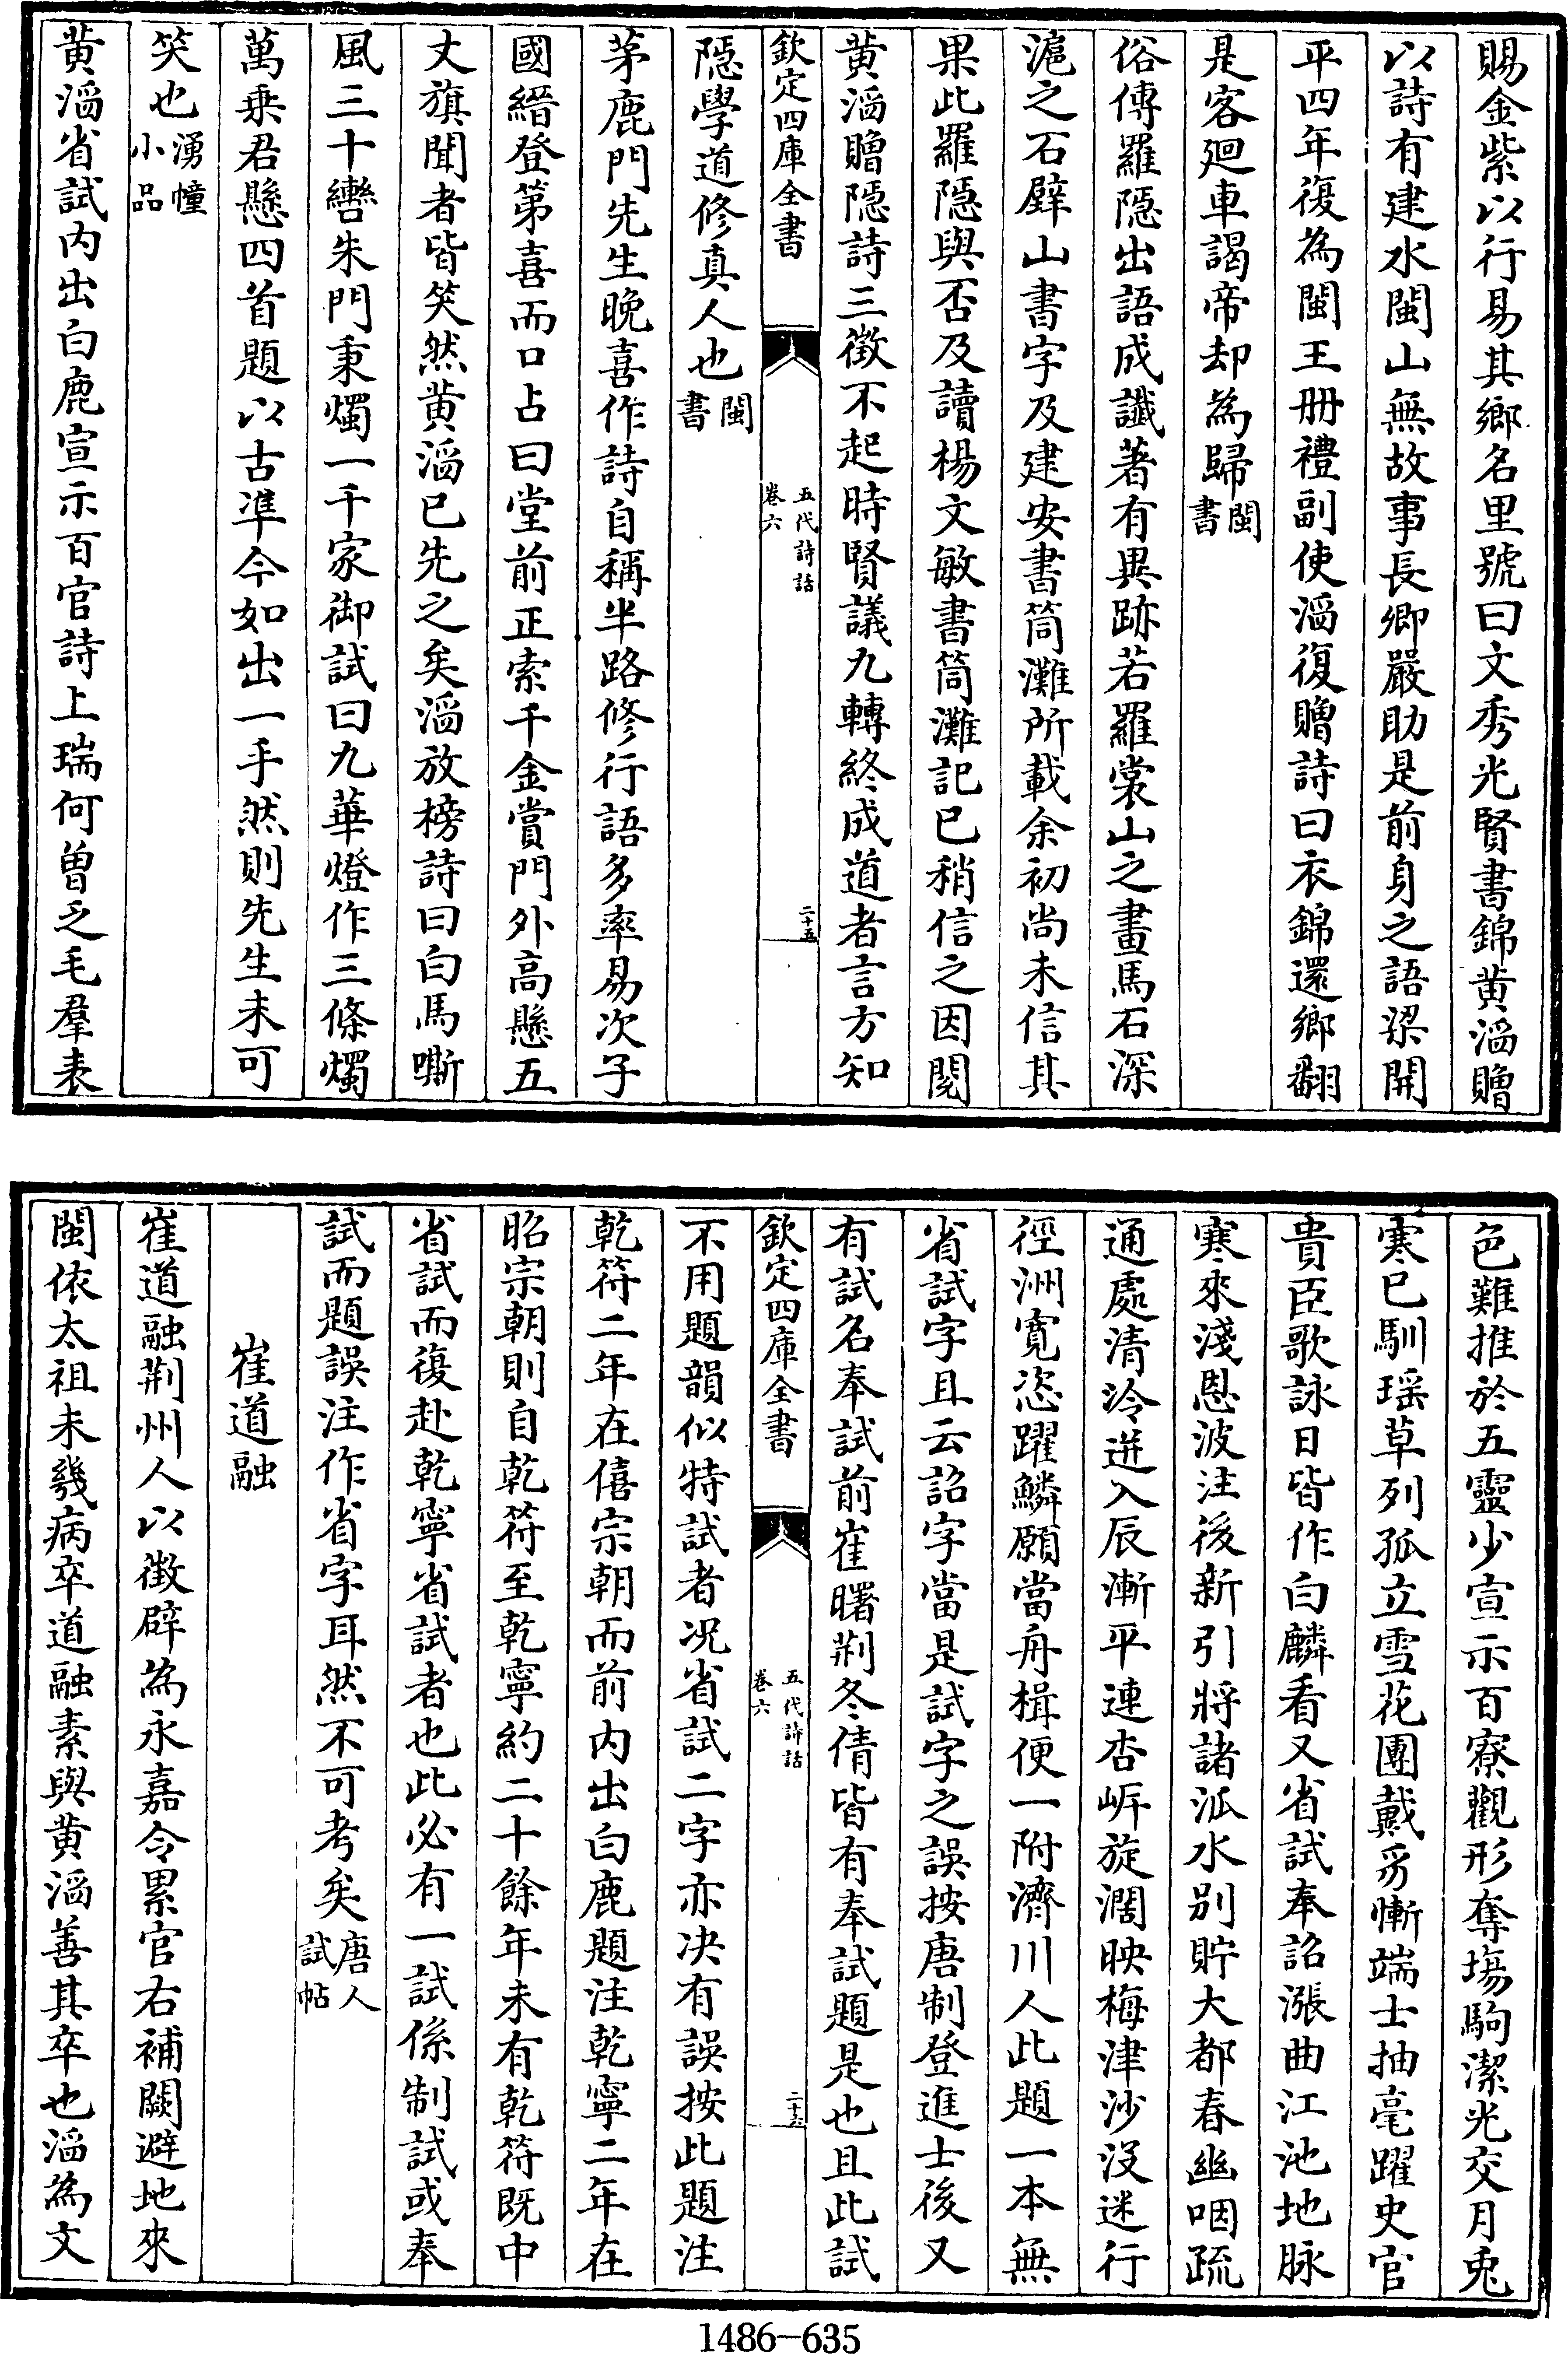 賜金紫以行易其鄉名里號曰文秀光賢書錦黄滔贈
以詩有建水閩山無故事長卿嚴助是前身之語梁開
平四年復為閩王册禮副使滔復贈詩曰衣錦還鄉翻
是客廻車謁帝却為歸閩書
俗傳羅隠出語成讖著有異跡若羅裳山之畫馬石深
滬之石壁山書字及建安書筒灘所載余初尚未信其
果此羅隠與否及讀楊文敏書筒灘記已稍信之因閱
黄滔贈隠詩三徵不起時賢議九轉終成道者言方知
欽定四庫全書
五代詩話
卷六
二十五
隠學道修真人也閩書
茅鹿門先生晚喜作詩自稱半路修行語多率易次子
國縉登第喜而口占曰堂前正索千金賞門外高懸五
丈旗聞者皆笑然黄滔已先之矣滔放榜詩曰白馬嘶
風三十轡朱門秉燭一千家御試曰九華燈作三條燭
萬乗君懸四首題以古凖今如出一手然則先生未可
笑也湧幢小品
黄滔省試内出白鹿宣示百官詩上瑞何曽乏毛羣表
色難推於五靈少宣示百寮觀形奪塲駒潔光交月兎
寒已馴瑶草列孤立雪花團戴豸慚端士抽毫躍史官
貴臣歌詠日皆作白麟看又省試奉詔漲曲江池地脉
寒來淺恩波注後新引將諸泒水别貯大都春幽咽疏
通處清泠迸入辰漸平連杏岸旋濶映梅津沙没迷行
徑洲寛恣躍鱗願當舟楫便一附濟川人此題一本無
省試字且云詔字當是試字之誤按唐制登進士後又
有試名奉試前崔曙荆冬倩皆有奉試題是也且此試
欽定四庫全書
五代詩話
卷六
二十六
不用題韻似特試者况省試二字亦决有誤按此題注
乾符二年在僖宗朝而前内出白鹿題注乾寧二年在
昭宗朝則自乾符至乾寧約二十餘年未有乾符既中
省試而復赴乾寧省試者也此必有一試係制試或奉
試而題誤注作省字耳然不可考矣唐人試帖
崔道融
崔道融荆州人以徴辟為永嘉令累官右補闕避地來
閩依太祖未幾病卒道融素與黄滔善其卒也滔為文
1486-635